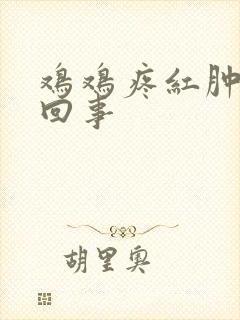 鸡鸡疼红肿
回事
胡里奥